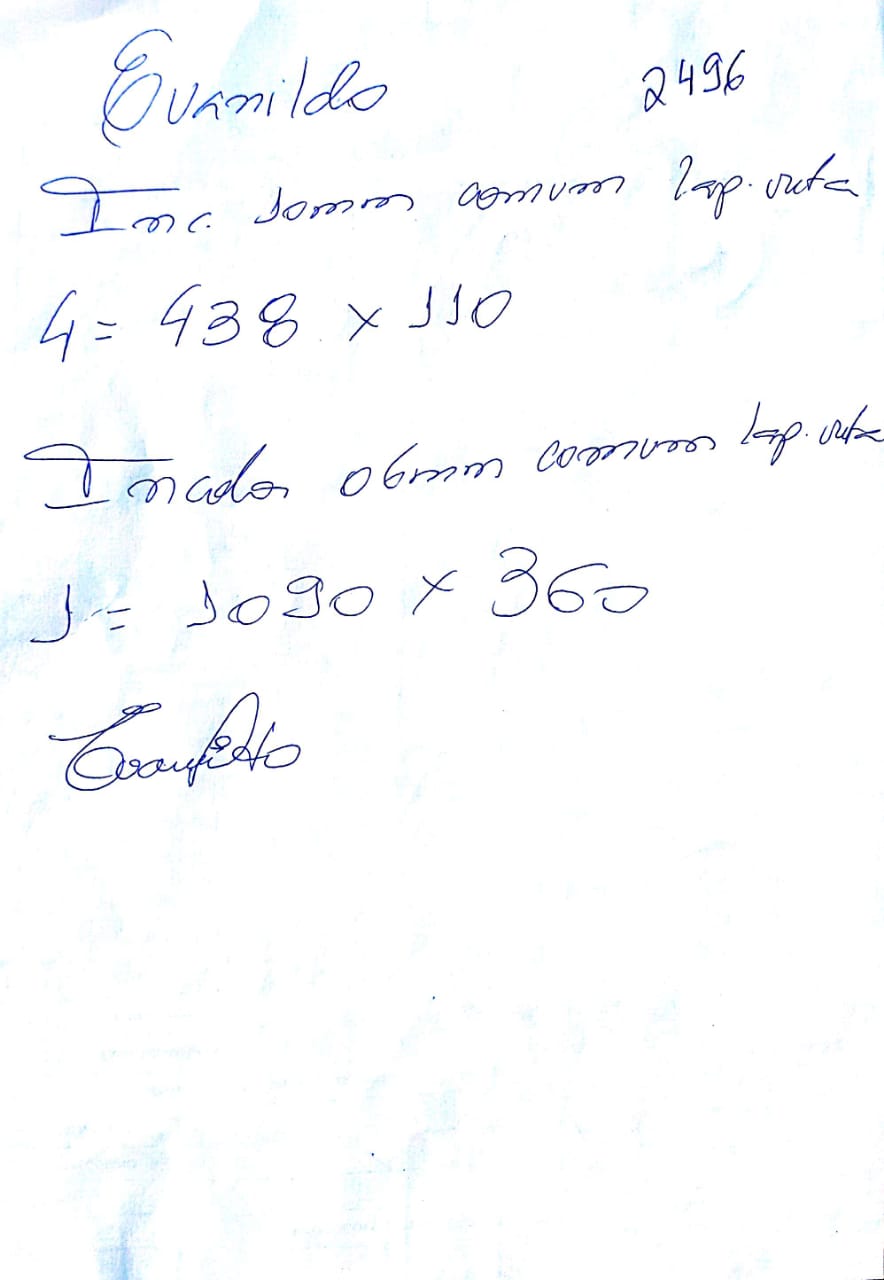 Evanildo 2496
Inc. 10mm comum lap. reta
4 = 438 x 110
Incolor 06mm comum lap. reta
1 = 1090 x 360